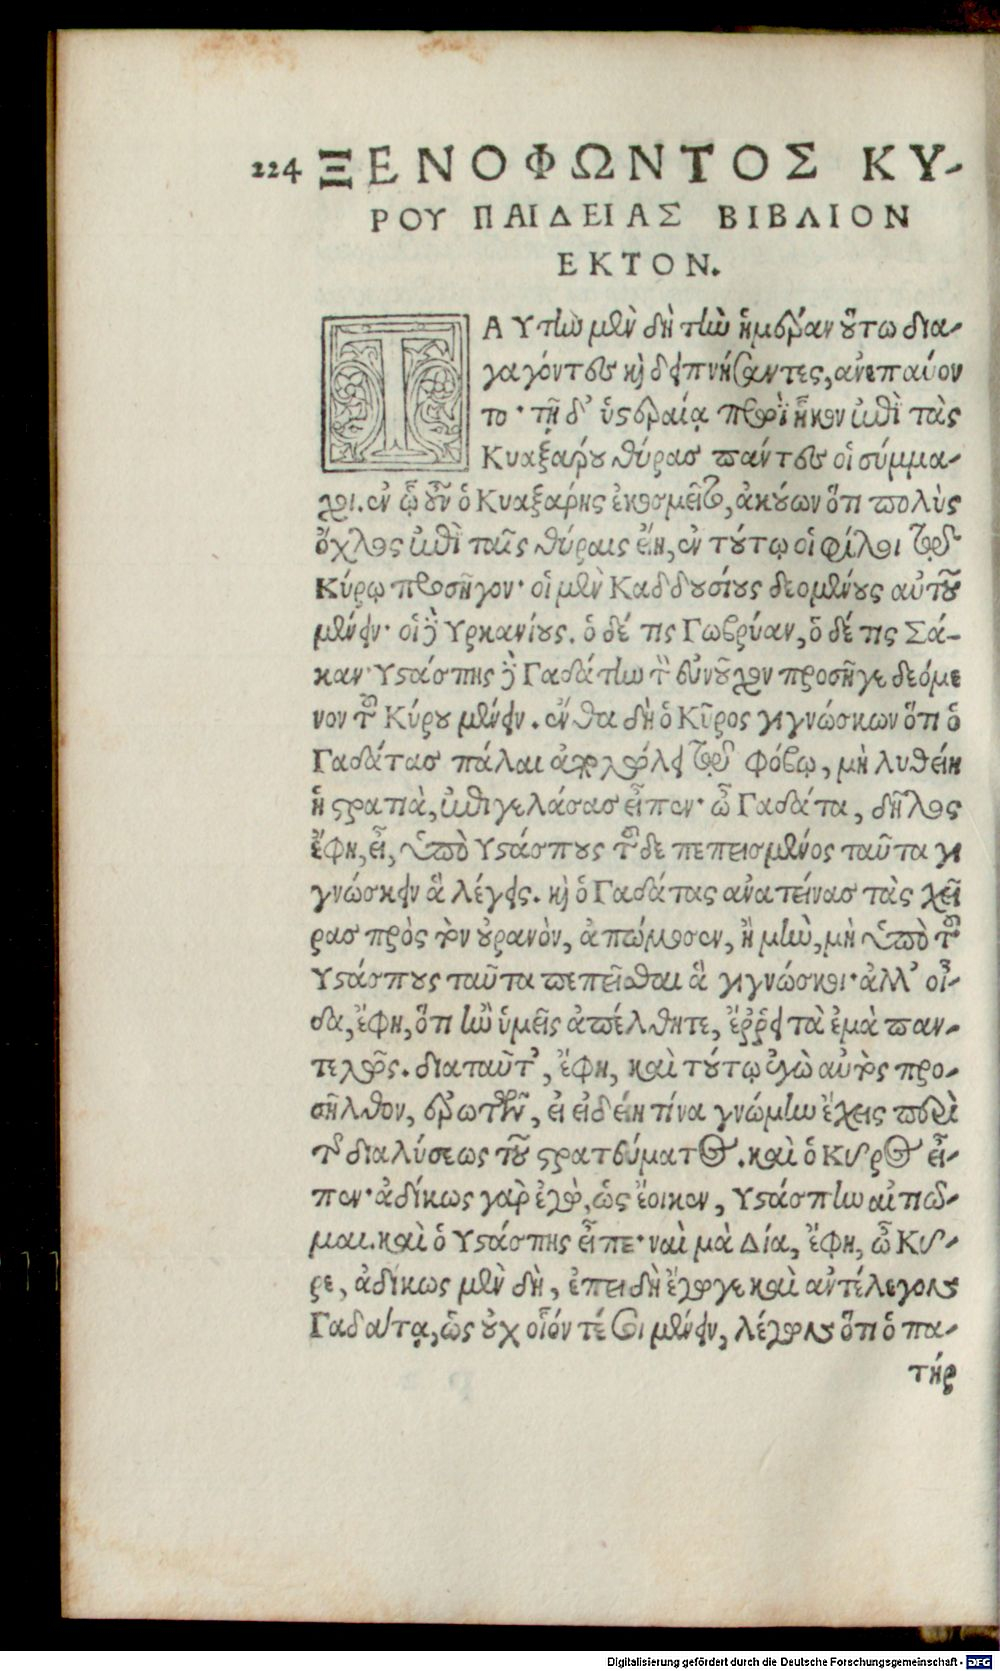 224 ΞΕΝΟΦΩΝΤΟΣ ΚΥ-
ΡΟΥ ΠΑΙΔΕΙΑΣ ΒΙΒΛΙΟΝ
ΕΚΤΟΝ.
ΤΑΥτίω μὲν δὴ τίω ἡμέραν ὅτω δια-
γαγόντες καὶ δειπνήσαντες, ἀνεπαύον
το· τῇ δ' ὑστεραίᾳ πρωῒ ἧκον ἐπὶ τὰς
Κυαξάρου θύρας πάντες οἱ σύμμα-
χοι. ἐν ᾧ οὖν ὁ Κυαξάρης ἐκοσμεῖτο, ἀκούων ὅτι πολὺς
ὄχλος ἐπὶ ταῖς θύραις εἴη, ἐν τούτῳ οἱ φίλοι τῷ
Κύρῳ προσῆγον· οἱ μὲν Καδδουσίους δεομένους αὐτοῦ
μένειν· οἱ δὲ Υρκανίους. ὁ δέ τις Γωβρύαν, ὁ δέ τις Σά-
καν· Υστάσπης δὲ Γαδάταν τὸν εὐνοῦχον προσῆγε δεόμε
νον τοῦ Κύρου μένειν. ἔνθα δὴ ὁ Κῦρος γιγνώσκων ὅτι ὁ
Γαδάτας πάλαι ἀπολώλει τῷ φόβῳ, μὴ λυθείη
ἡ στρατιὰ, ἐπιγελάσας εἶπεν· ὦ Γαδάτα, δῆλος
ἔφη, εἶ, ὑπὸ Υστάσπους τοῦδε πεπεισμένος ταῦτα γι
γνώσκειν ἃ λέγεις. καὶ ὁ Γαδάτας ἀνατείνας τὰς χεῖ
ρας πρὸς τὸν οὐρανὸν, ἀπώμοσεν, ἦ μὴν, μὴ ὑπὸ τοῦ
Υστάσπους ταῦτα πεπεῖσθαι ἃ γιγνώσκοι· ἀλλ' οἶ-
δα, ἔφη, ὅτι ἢν ὑμεῖς ἀπέλθητε, ἔῤῥει τὰ ἐμὰ παν-
τελῶς. διαταῦτ', ἔφη, καὶ τούτῳ ἐγὼ αὐτὸς προ-
σῆλθον, ἐρωτῶν, εἰ εἰδείη τίνα γνώμην ἔχεις περὶ
τῆς διαλύσεως τοῦ στρατεύματος. καὶ ὁ Κῦρος εἶ-
πεν· ἀδίκως γὰρ ἐγὼ, ὡς ἔοικεν, Υστάσπην αἰτιῶ-
μαι. καὶ ὁ Υστάσπης εἶπε· ναὶ μὰ Δία, ἔφη, ὦ Κῦ-
ρε, ἀδίκως μὲν δὴ, ἐπειδὴ ἔγωγε καὶ ἀντέλεγον
Γαδάτᾳ, ὡς οὐχ οἷόν τέ σοι μένειν, λέγων ὅτι ὁ πα-
τήρ
Digitalisierung gefördert durch die Deutsche Forschungsgemeinschaft - DFG